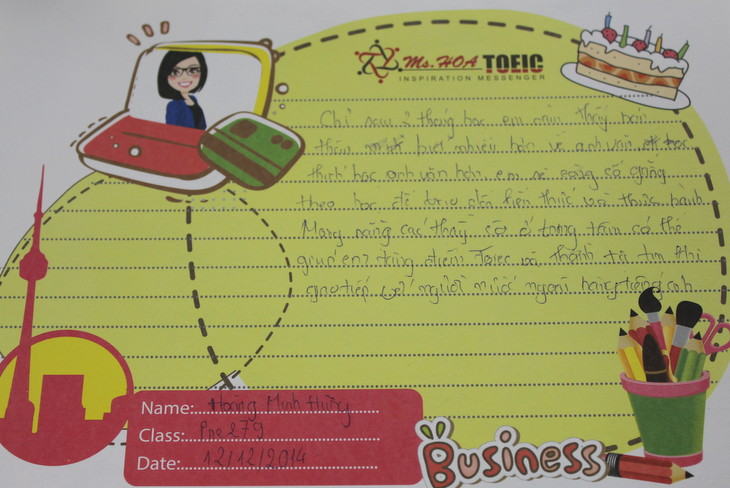 Ms. HOA TOEIC
INSPIRATION MESSENGER
Chỉ sau 2 tháng học em cảm thấy bản
thân biết nhiều hơn về anh văn
thích học anh văn hơn, em sẽ cố gắng
theo học để trau dồi kiến thức và thực hành
Mong rằng các thầy cô ở trung tâm có thể
giúp em tăng điểm Toeic và thành tự tin khi
giao tiếp với người nước ngoài bằng tiếng anh
Name: Hoàng Minh Hường
Class: Pre 279
Date: 12/12/2014
BUSINESS